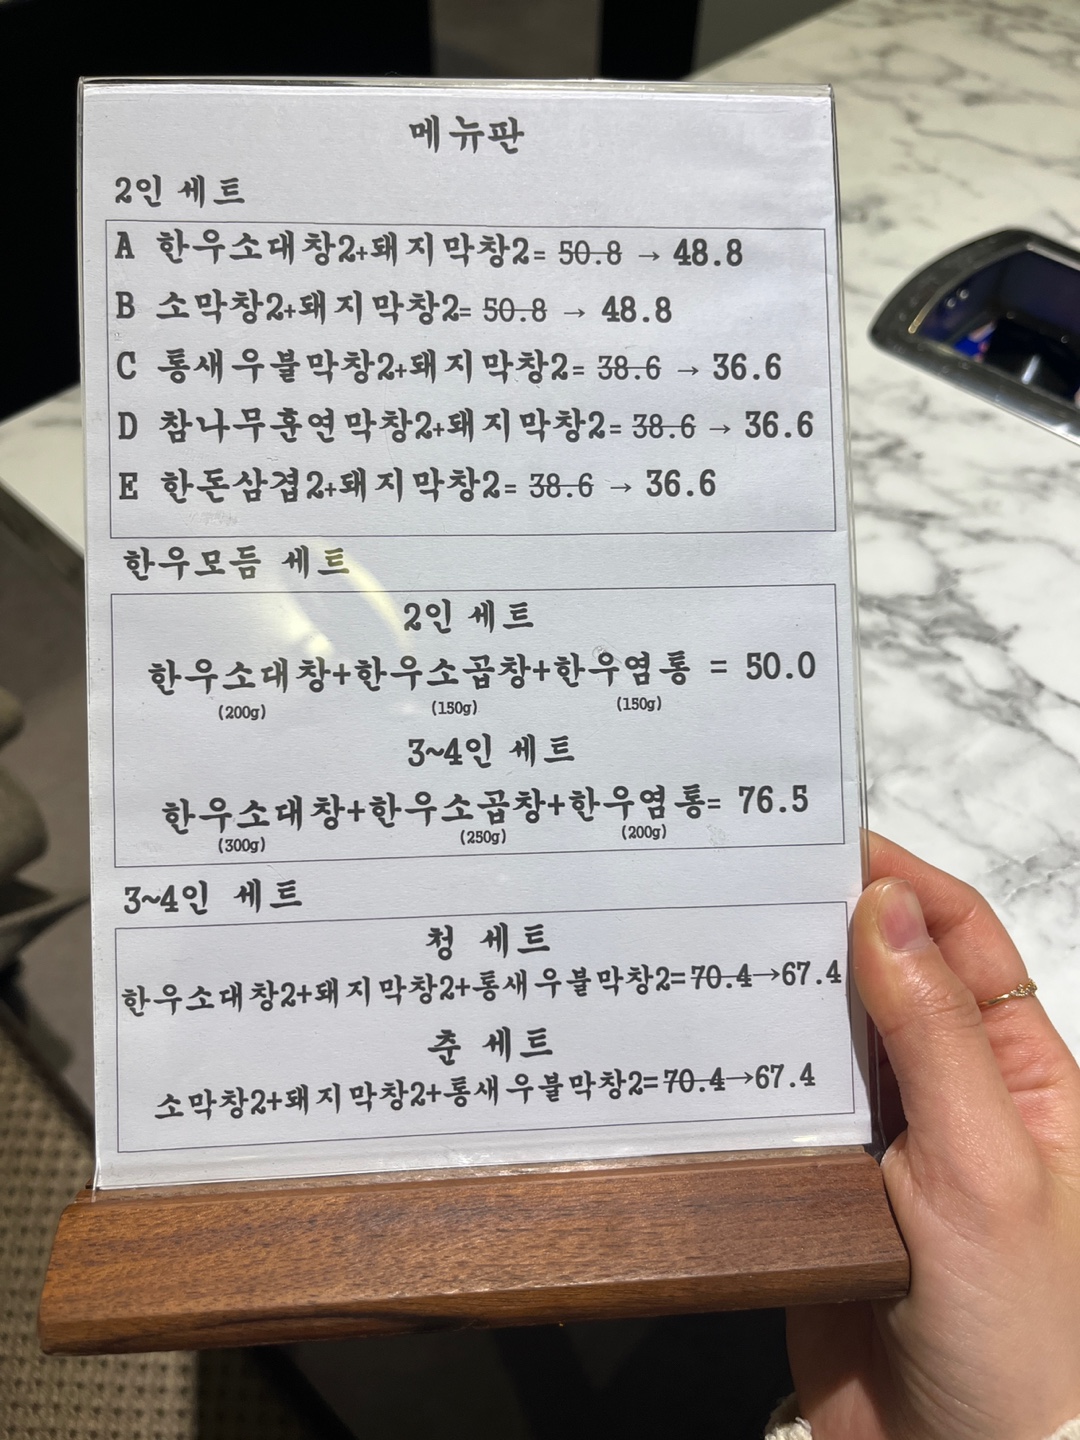 메뉴판
2인 세트
A 한우소대창2+돼지막창2= 50.8 → 48.8
B 소막창2+돼지막창2= 50.8 → 48.8
C 통새우불막창2+돼지막창2= 38.6 → 36.6
D 참나무훈연막창2+돼지막창2= 38.6 → 36.6
E 한돈삼겹2+돼지막창2= 38.6 → 36.6
한우모듬 세트
2인 세트
한우소대창+한우소곱창+한우염통 = 50.0
(200g) (150g) (150g)
3~4인 세트
한우소대창+한우소곱창+한우염통= 76.5
(300g) (250g) (200g)
3~4인 세트
청 세트
한우소대창2+돼지막창2+통새우불막창2=70.4→67.4
춘 세트
소막창2+돼지막창2+통새우불막창2=70.4→67.4